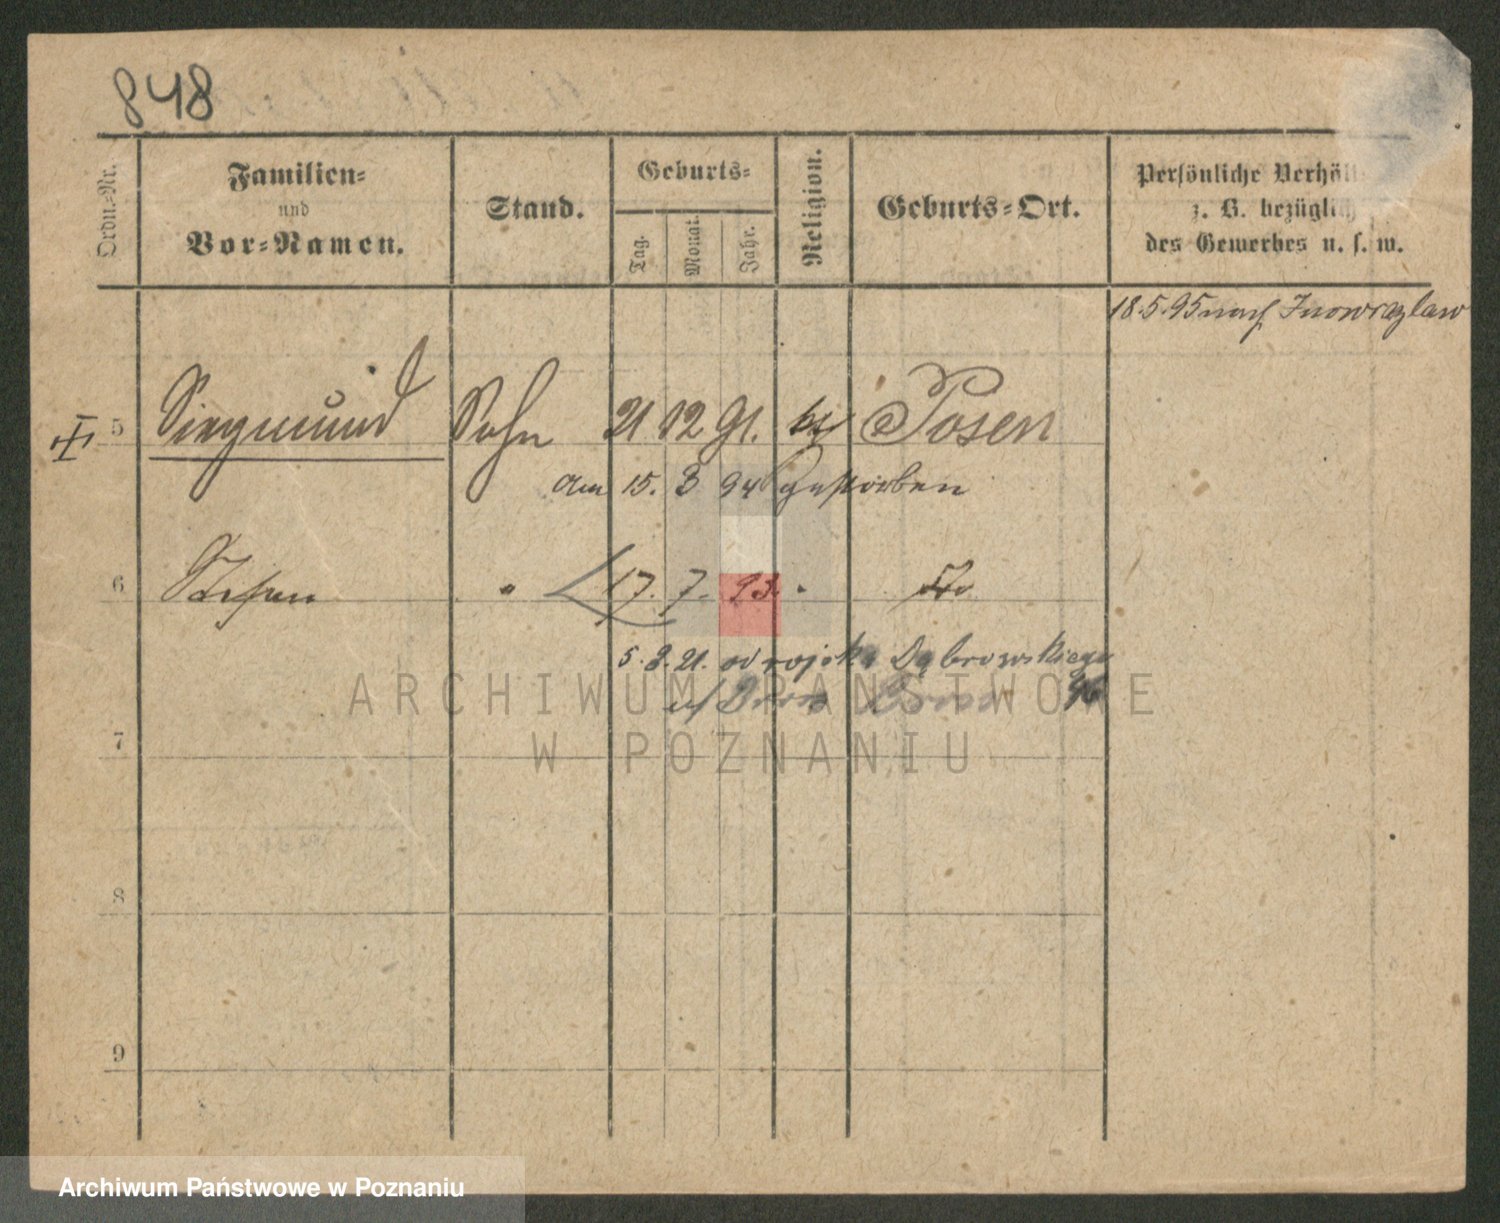 848
Ordn.-Nr.
Familien-
und
Vor-Namen.
Stand.
Geburts-
Tag.
Monat.
Jahr.
Religion.
Geburts-Ort.
Persönliche Verhält
z. B. bezüglich
des Gewerbes u. s. w.
18.5.95 nach Inowrazlaw
5 Siegmund Sohn 21 12 91. Posen
am 15. 3 94 gestorben
6 Stefan " 17. 7. 93. " do
5. 3. 21. od wojsk. Dąbrowskiego
7
8
9
ARCHIWUM PAŃSTWOWE
W POZNANIU
Archiwum Państwowe w Poznaniu